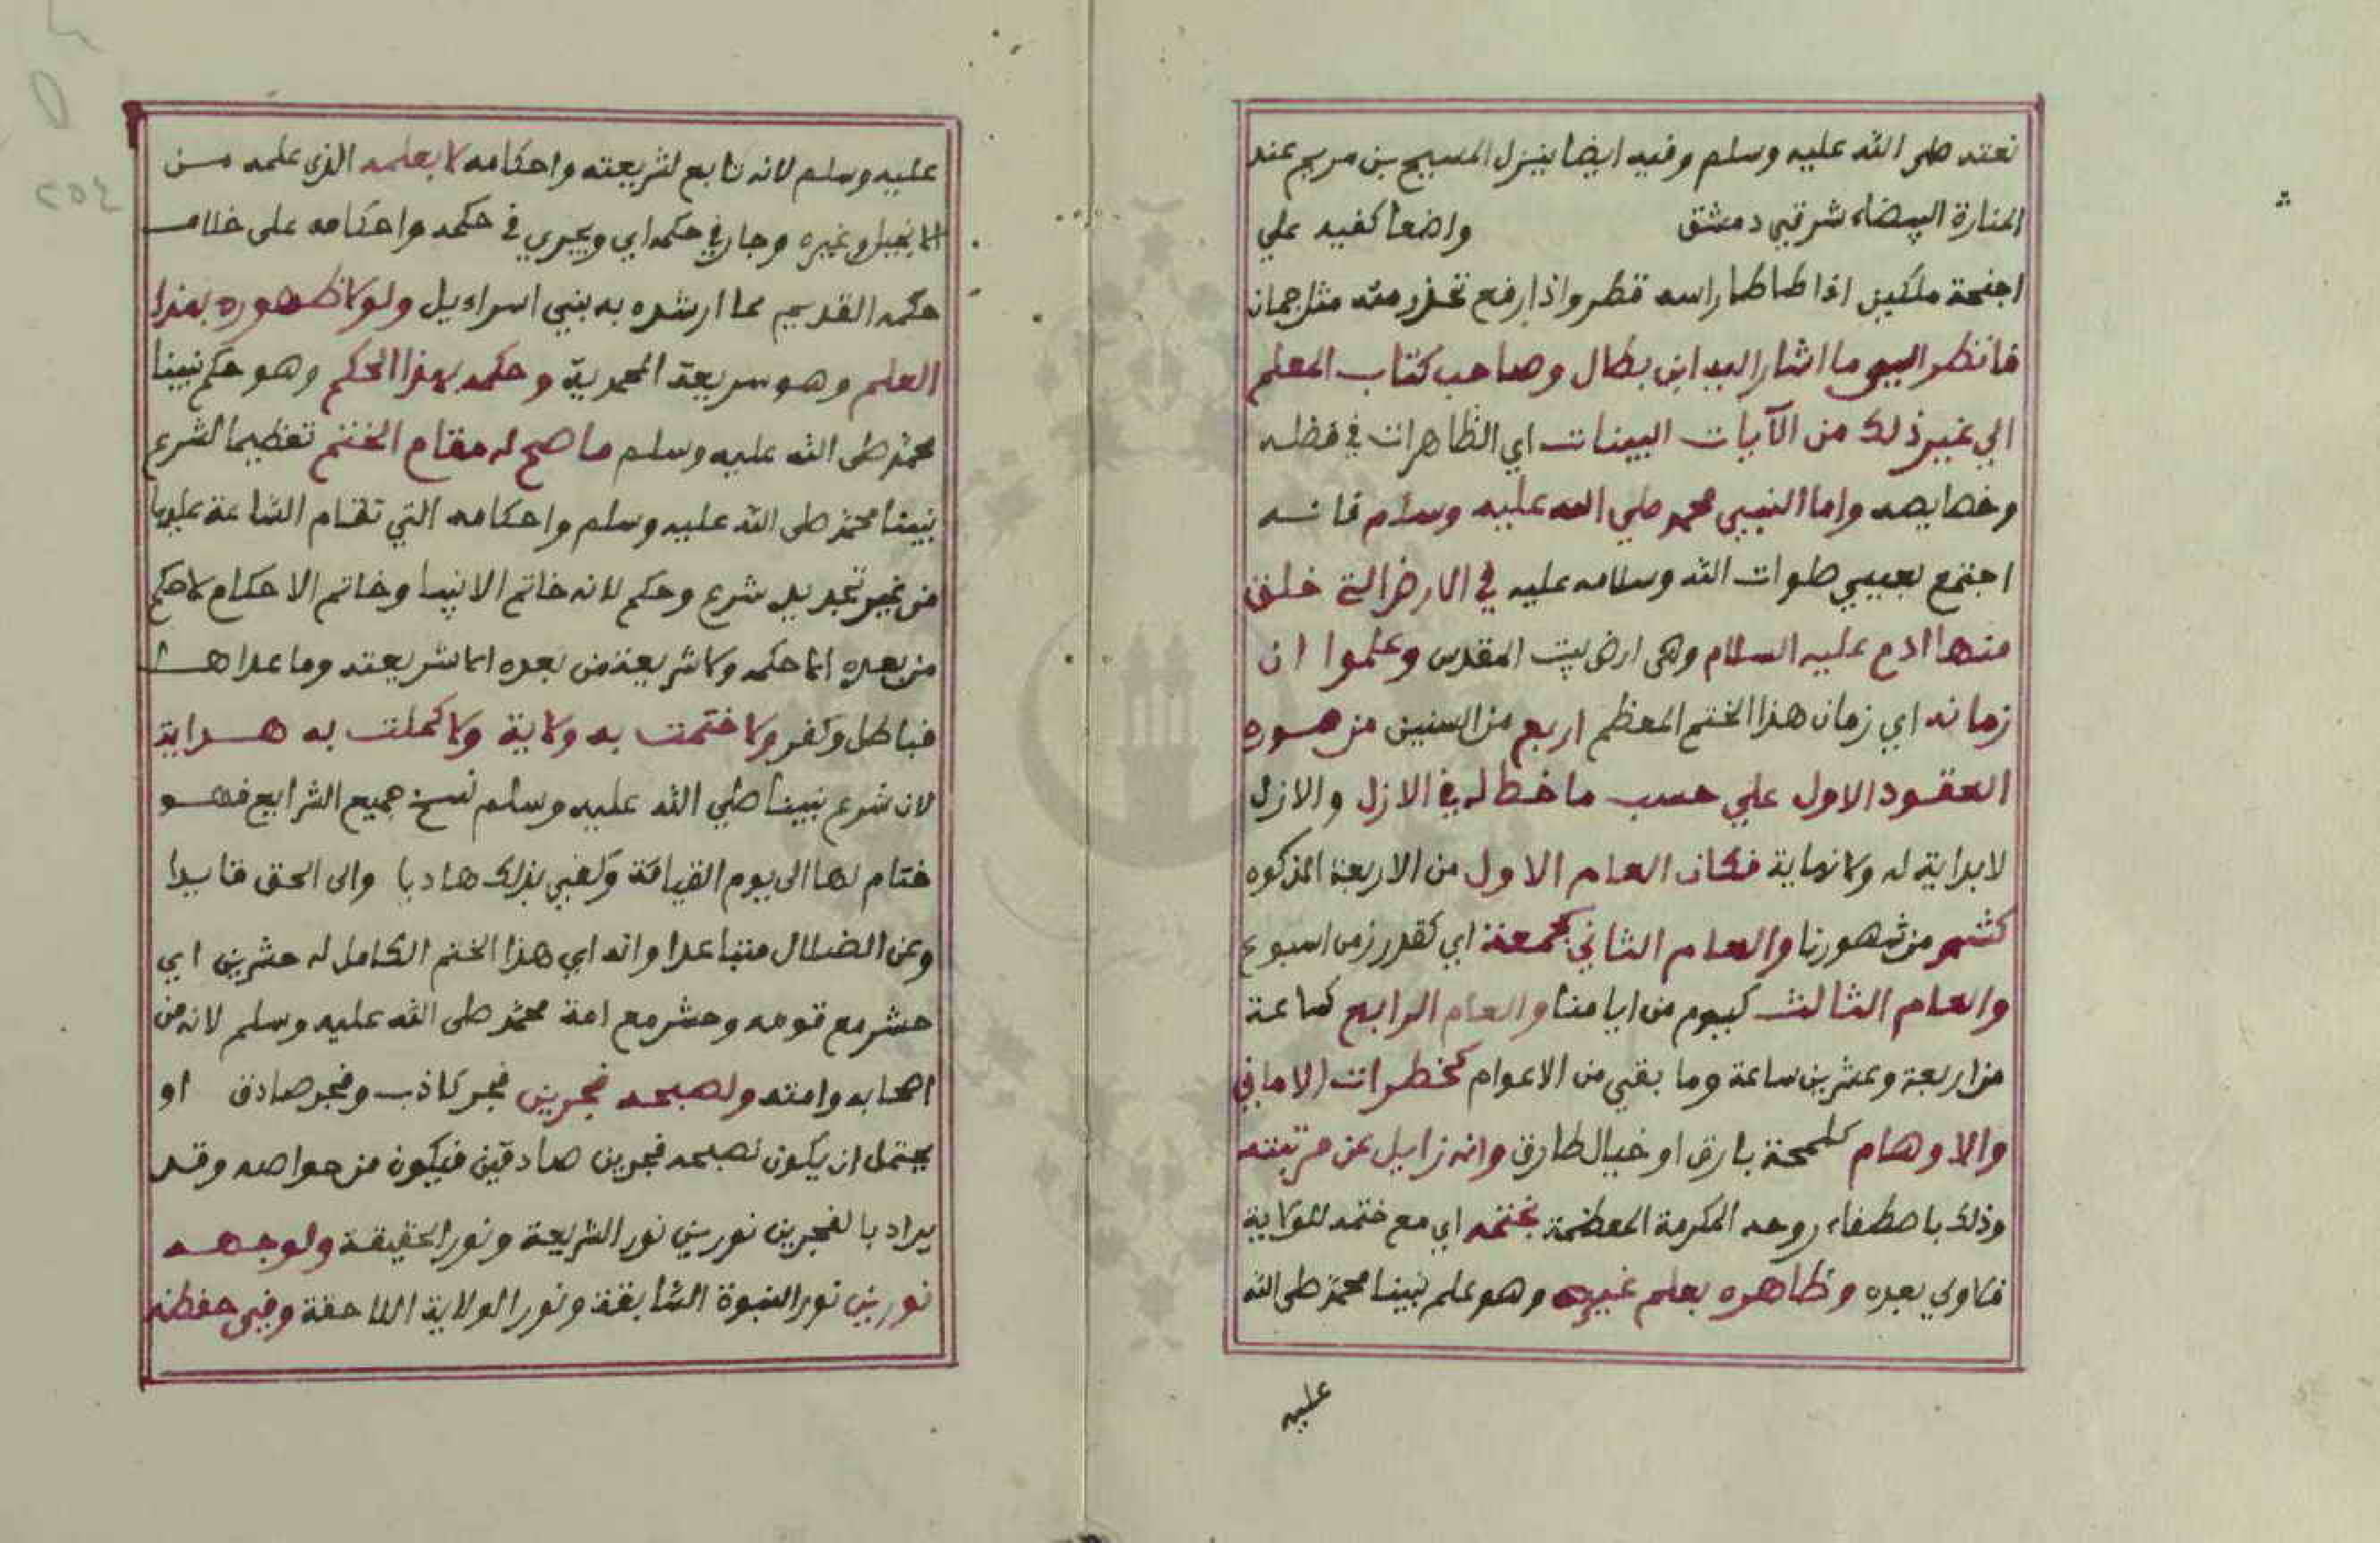 نعته صلى الله عليه وسلم وفيه ايضا ينزل المسيح بن مريم عند
المنارة البيضاء شرقي دمشق واضعا كفيه علي
اجنحة ملكين اذا طاطا راسه قطر واذا رفع تحذر منه مثل جمان
فانظر الي ما اشار اليه ابن بطال وصاحب كتاب المعلم
الي غير ذلك من الآيات البينات اي الظاهرات في فضله
وخصايصه واما النبي محمد صلي الله عليه وسلم فانه
اجتمع بعيسي صلوات الله وسلامه عليه في الارض التي خلق
منها ادم عليه السلام وهي ارض بيت المقدس وعلموا ان
زمانه اي زمان هذا الختم المعظم اربع من السنين من هوره
العقود الاول علي حسب ما خط له في الازل والازل
لا بداية له ولا نهاية فكان العام الاول من الاربعة المذكوره
كشهر من شهورنا والعام الثاني كجمعة اي كقدر زمن اسبوع
والعام الثالث كيوم من ايامنا والعام الرابع كساعة
من اربعة وعشرين ساعة وما بقي من الاعوام كخطرات الاماني
والاوهام كلمحة بارق او خيال طارق وانه زايل عن مرتبته
وذلك باصطفاء روحه المكرمة المعظمة بختمه اي مع ختمه للولاية
فلا ولي بعده وظاهره بعلم غيره وهو علم نبينا محمد صلى الله
عليه
عليه وسلم لانه تابع لشريعته واحكامه لا بعلمه الذي علمه من
الانجيل وغيره وجار في حكمه اي ويجري في حكمه واحكامه على خلاف
حكمه القديم مما ارشده به بني اسراءيل ولولا ظهوره بهذا
العلم وهو سريعة المحمدية وحكمه بهذا الحكم وهو حكم نبينا
محمد صلى الله عليه وسلم ما صح له مقام الختم تعظيما لشرع
نبينا محمد صلى الله عليه وسلم واحكامه التي تقام الساعة عليها
من غير تجديد شرع وحكم لانه خاتم الانبيا وخاتم الاحكام لا حكم
من بعده الا حكمه ولا شريعة من بعده الا شريعته وما عداها
فباطل وكفر ولا ختمت به ولاية ولا كملت به هداية
لان شرع نبينا صلي الله عليه وسلم نسخ جميع الشرايع فهو
ختام لها الى يوم القيامة وكفي بذلك هاديا والى الحق قايدا
وعن الضلال متباعدا وانه اي هذا الختم الكامل له حشرين اي
حشر مع قومه وحشر مع امة محمد صلى الله عليه وسلم لانه من
اصحابه وامته ولصبحه فجرين فجر كاذب وفجر صادق او
يحتمل ان يكون لصبحه فجرين صادقين فيكون من خواصه وقد
يراد بالفجرين نورين نور الشريعة ونور الحقيقة ولوجهه
نورين نور النبوة السابقة ونور الولاية اللاحقة وفي حفظه
٢٥٤